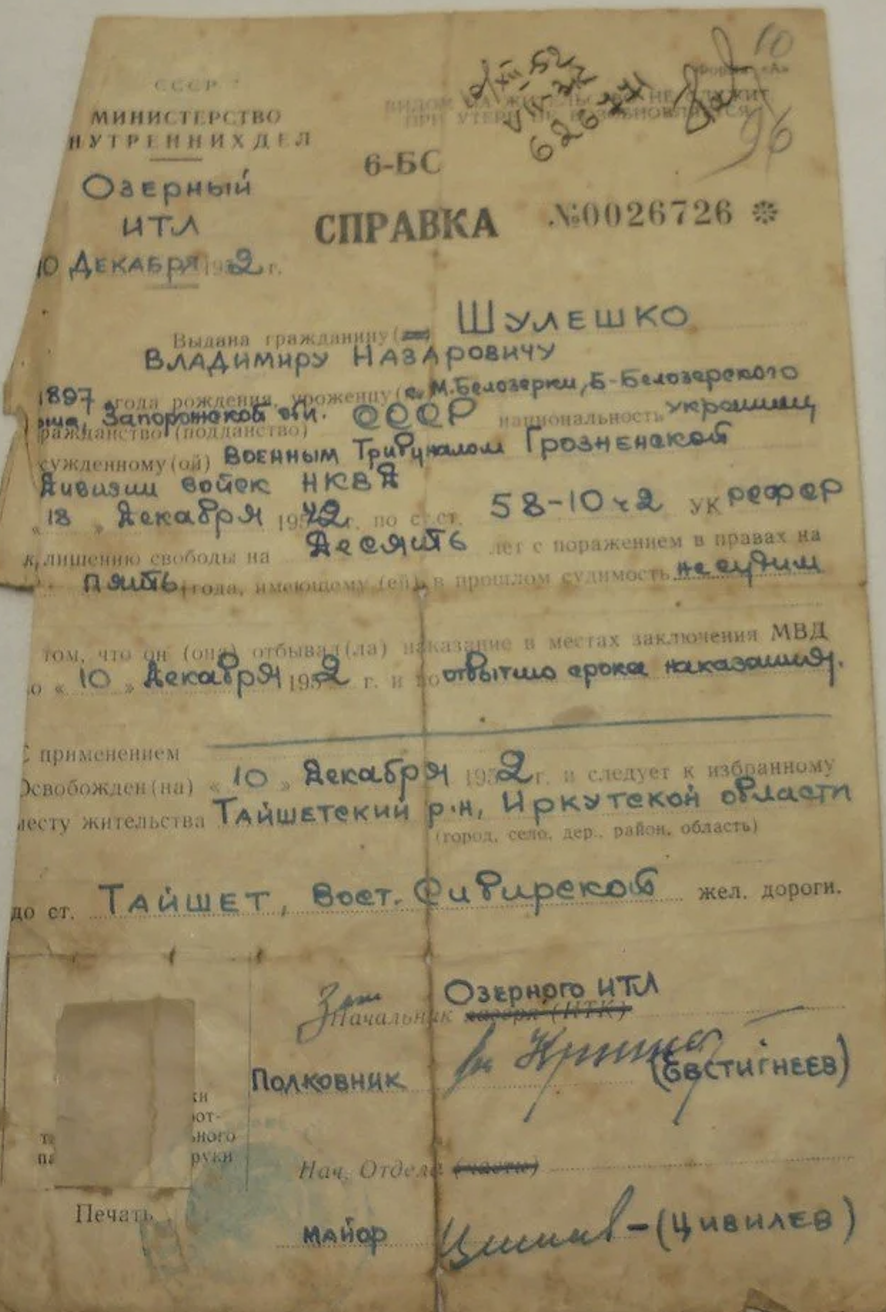 СССР
МИНИСТЕРСТВО
НУТРЕННИХ ДЕЛ
Озерный
ИТЛ
10 Декабря 1952 г.
10
Форма «А»
ВИДОМ НА ЖИТЕЛЬСТВО НЕ СЛУЖИТ
ПРИ УТЕРЕ НЕ ВОЗОБНОВЛЯЕТСЯ
626771
96
6-БС
СПРАВКА №0026726
Выдана гражданину Шулешко
Владимиру Назаровичу
1897 года рождения, уроженцу м. Белозерки, Б-Белозерского
р-на, Запорожской обл.
ражданство (подданство) СССР национальность украинец
сужденному (ой) Военным Трибуналом Грозненской
Дивизии войск НКВД
«18» Декабря 1942 г. по ст.ст. 58-10 ч 2 УК РСФСР
к лишению свободы на Десять лет с поражением в правах на
пять года, имеющему (ей) в прошлом судимость не судим
том, что он (она) отбывал (ла) наказание в местах заключения МВД
о «10» Декабря 1952 г. и по отбытию срока наказания.
С применением
Освобожден (на) «10» Декабря 1952 г. и следует к избранному
месту жительства Тайшетский р-н, Иркутской области
(город, село, дер., район, область)
до ст. Тайшет, Вост. Сибирской жел. дороги.
Зам Начальник лагеря (ИТК) Озерного ИТЛ
Полковник (Евстигнеев)
Нач. Отдела (части)
Печать
майор (Цивилев)